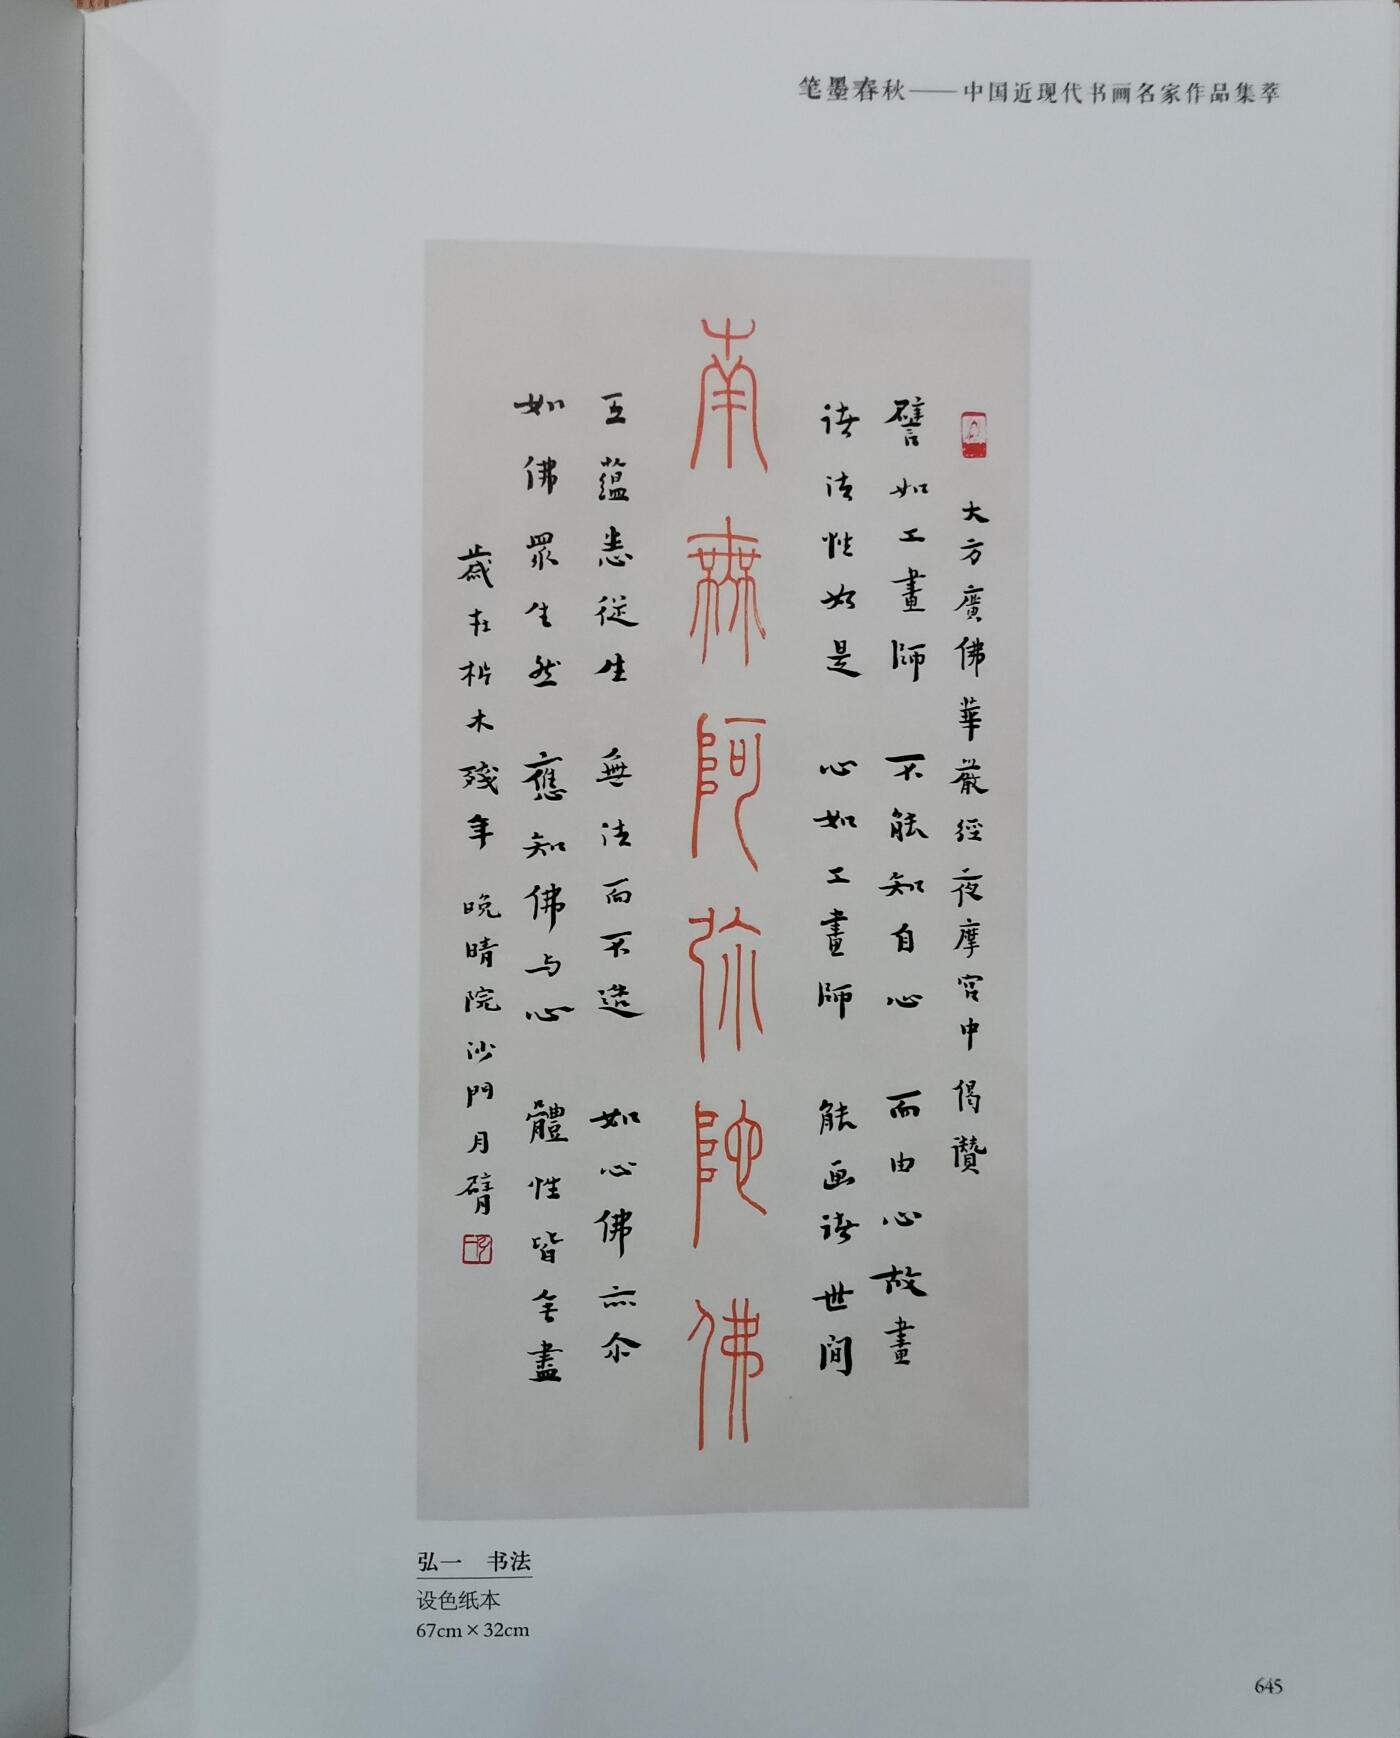 笔墨春秋——中国近现代书画名家作品集萃
大方廣佛華嚴經夜摩宮中偈讚
譬如工畫師 不能知自心 而由心故畫
諸法性如是 心如工畫師 能画諸世間
南無阿弥陀佛
五蘊悉從生 無法而不造 如心佛亦尒
如佛眾生然 應知佛与心 體性皆無盡
歲在析木殘年 晚晴院沙門月臂
弘一 书法
设色纸本
67cm×32cm
645